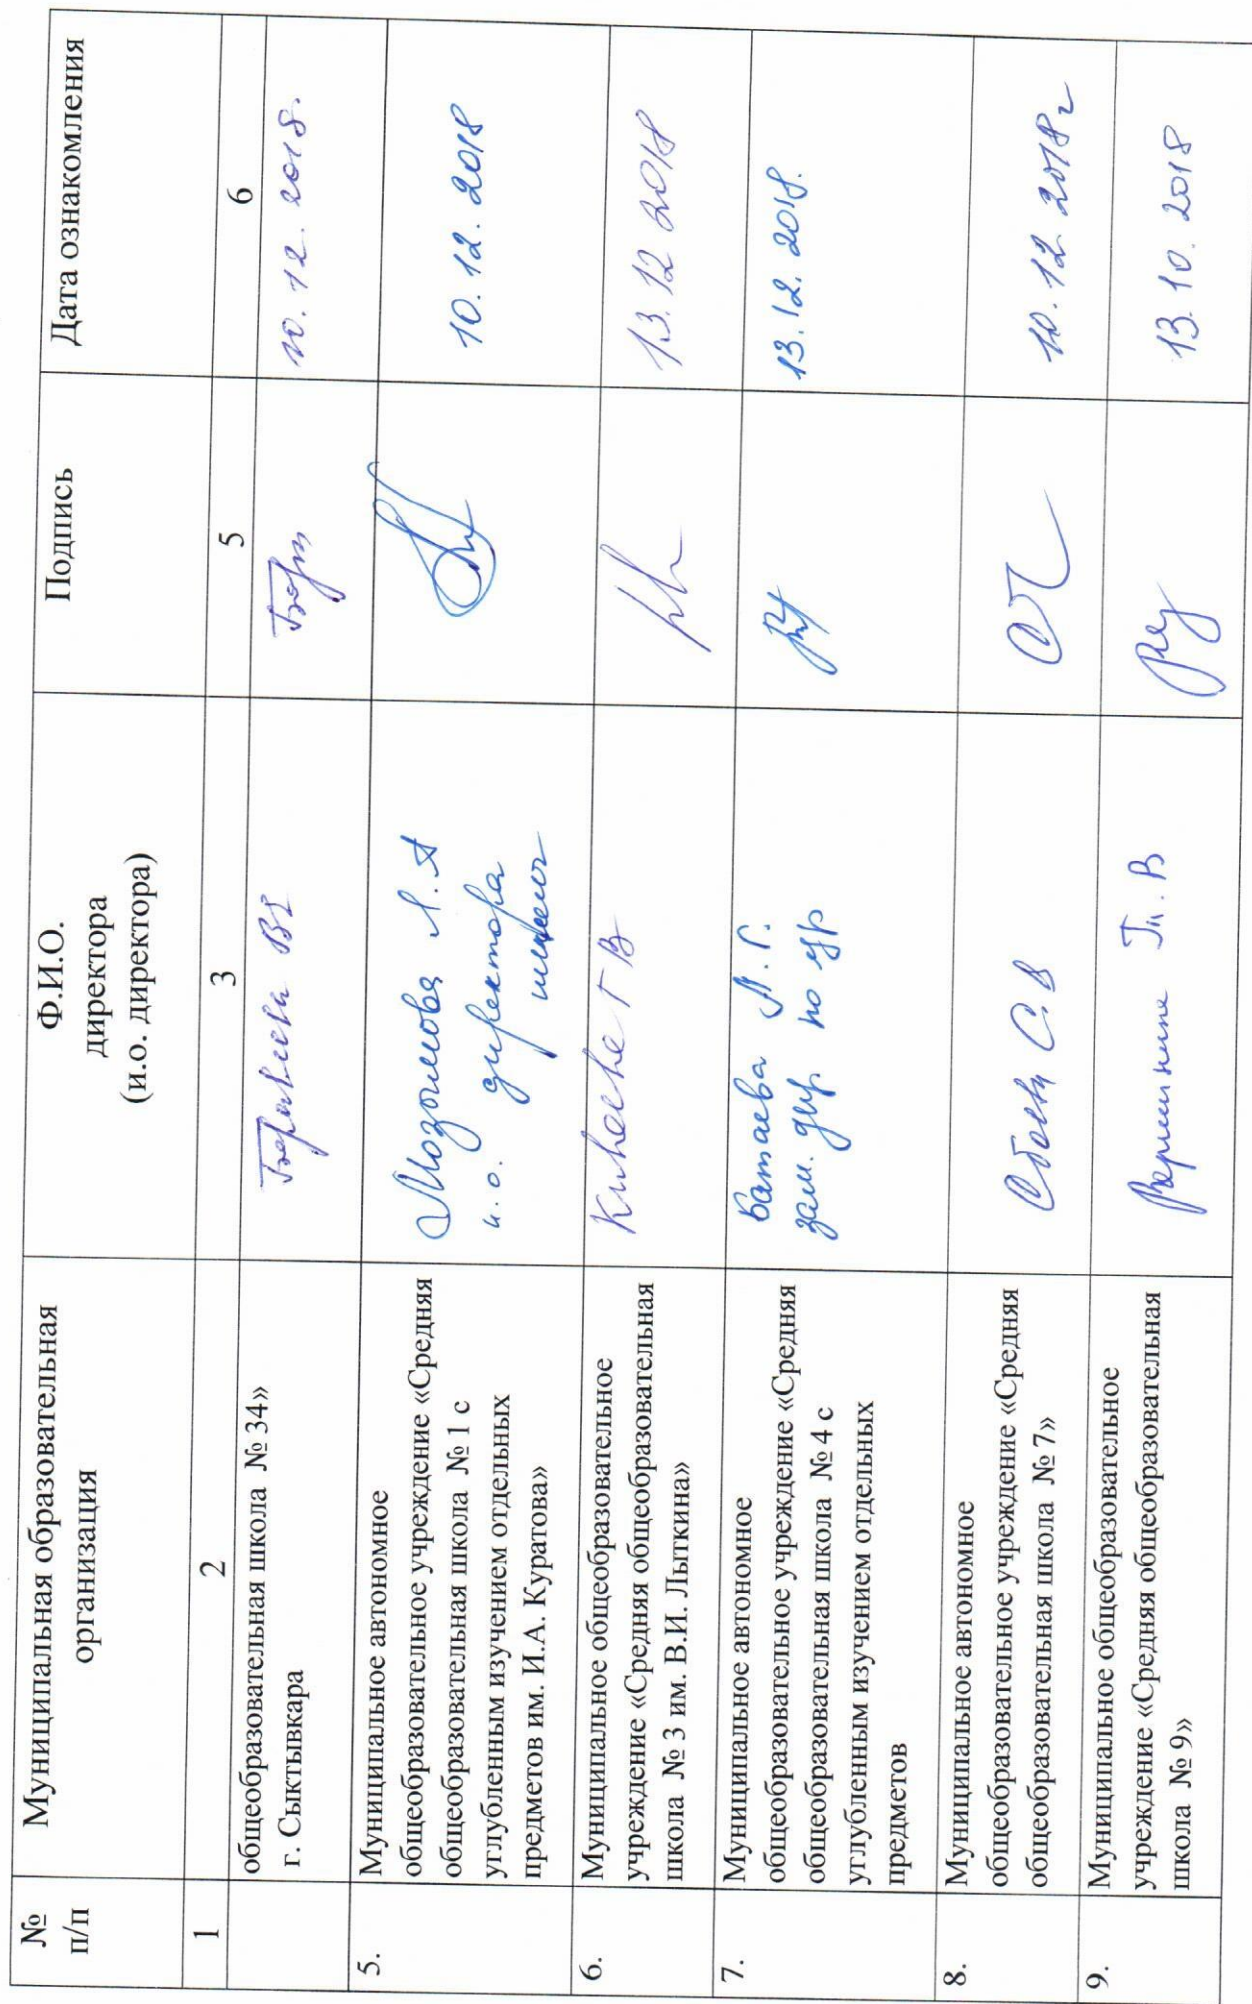 №
п/п
Муниципальная образовательная
организация
Ф.И.О.
директора
(и.о. директора)
Подпись
Дата ознакомления
1
2
3
5
6
общеобразовательная школа № 34»
г. Сыктывкара
10.12.2018.
5.
Муниципальное автономное
общеобразовательное учреждение «Средняя
общеобразовательная школа № 1 с
углубленным изучением отдельных
предметов им. И.А. Куратова»
Л.А
и.о. директора
школы
10.12.2018
6.
Муниципальное общеобразовательное
учреждение «Средняя общеобразовательная
школа № 3 им. В.И. Лыткина»
13.12 2018
7.
Муниципальное автономное
общеобразовательное учреждение «Средняя
общеобразовательная школа № 4 с
углубленным изучением отдельных
предметов
Батаева Л.Г.
зам. дир по ур
13.12.2018.
8.
Муниципальное автономное
общеобразовательное учреждение «Средняя
общеобразовательная школа № 7»
С.В
10.12.2018г
9.
Муниципальное общеобразовательное
учреждение «Средняя общеобразовательная
школа № 9»
Т.В
13.10.2018